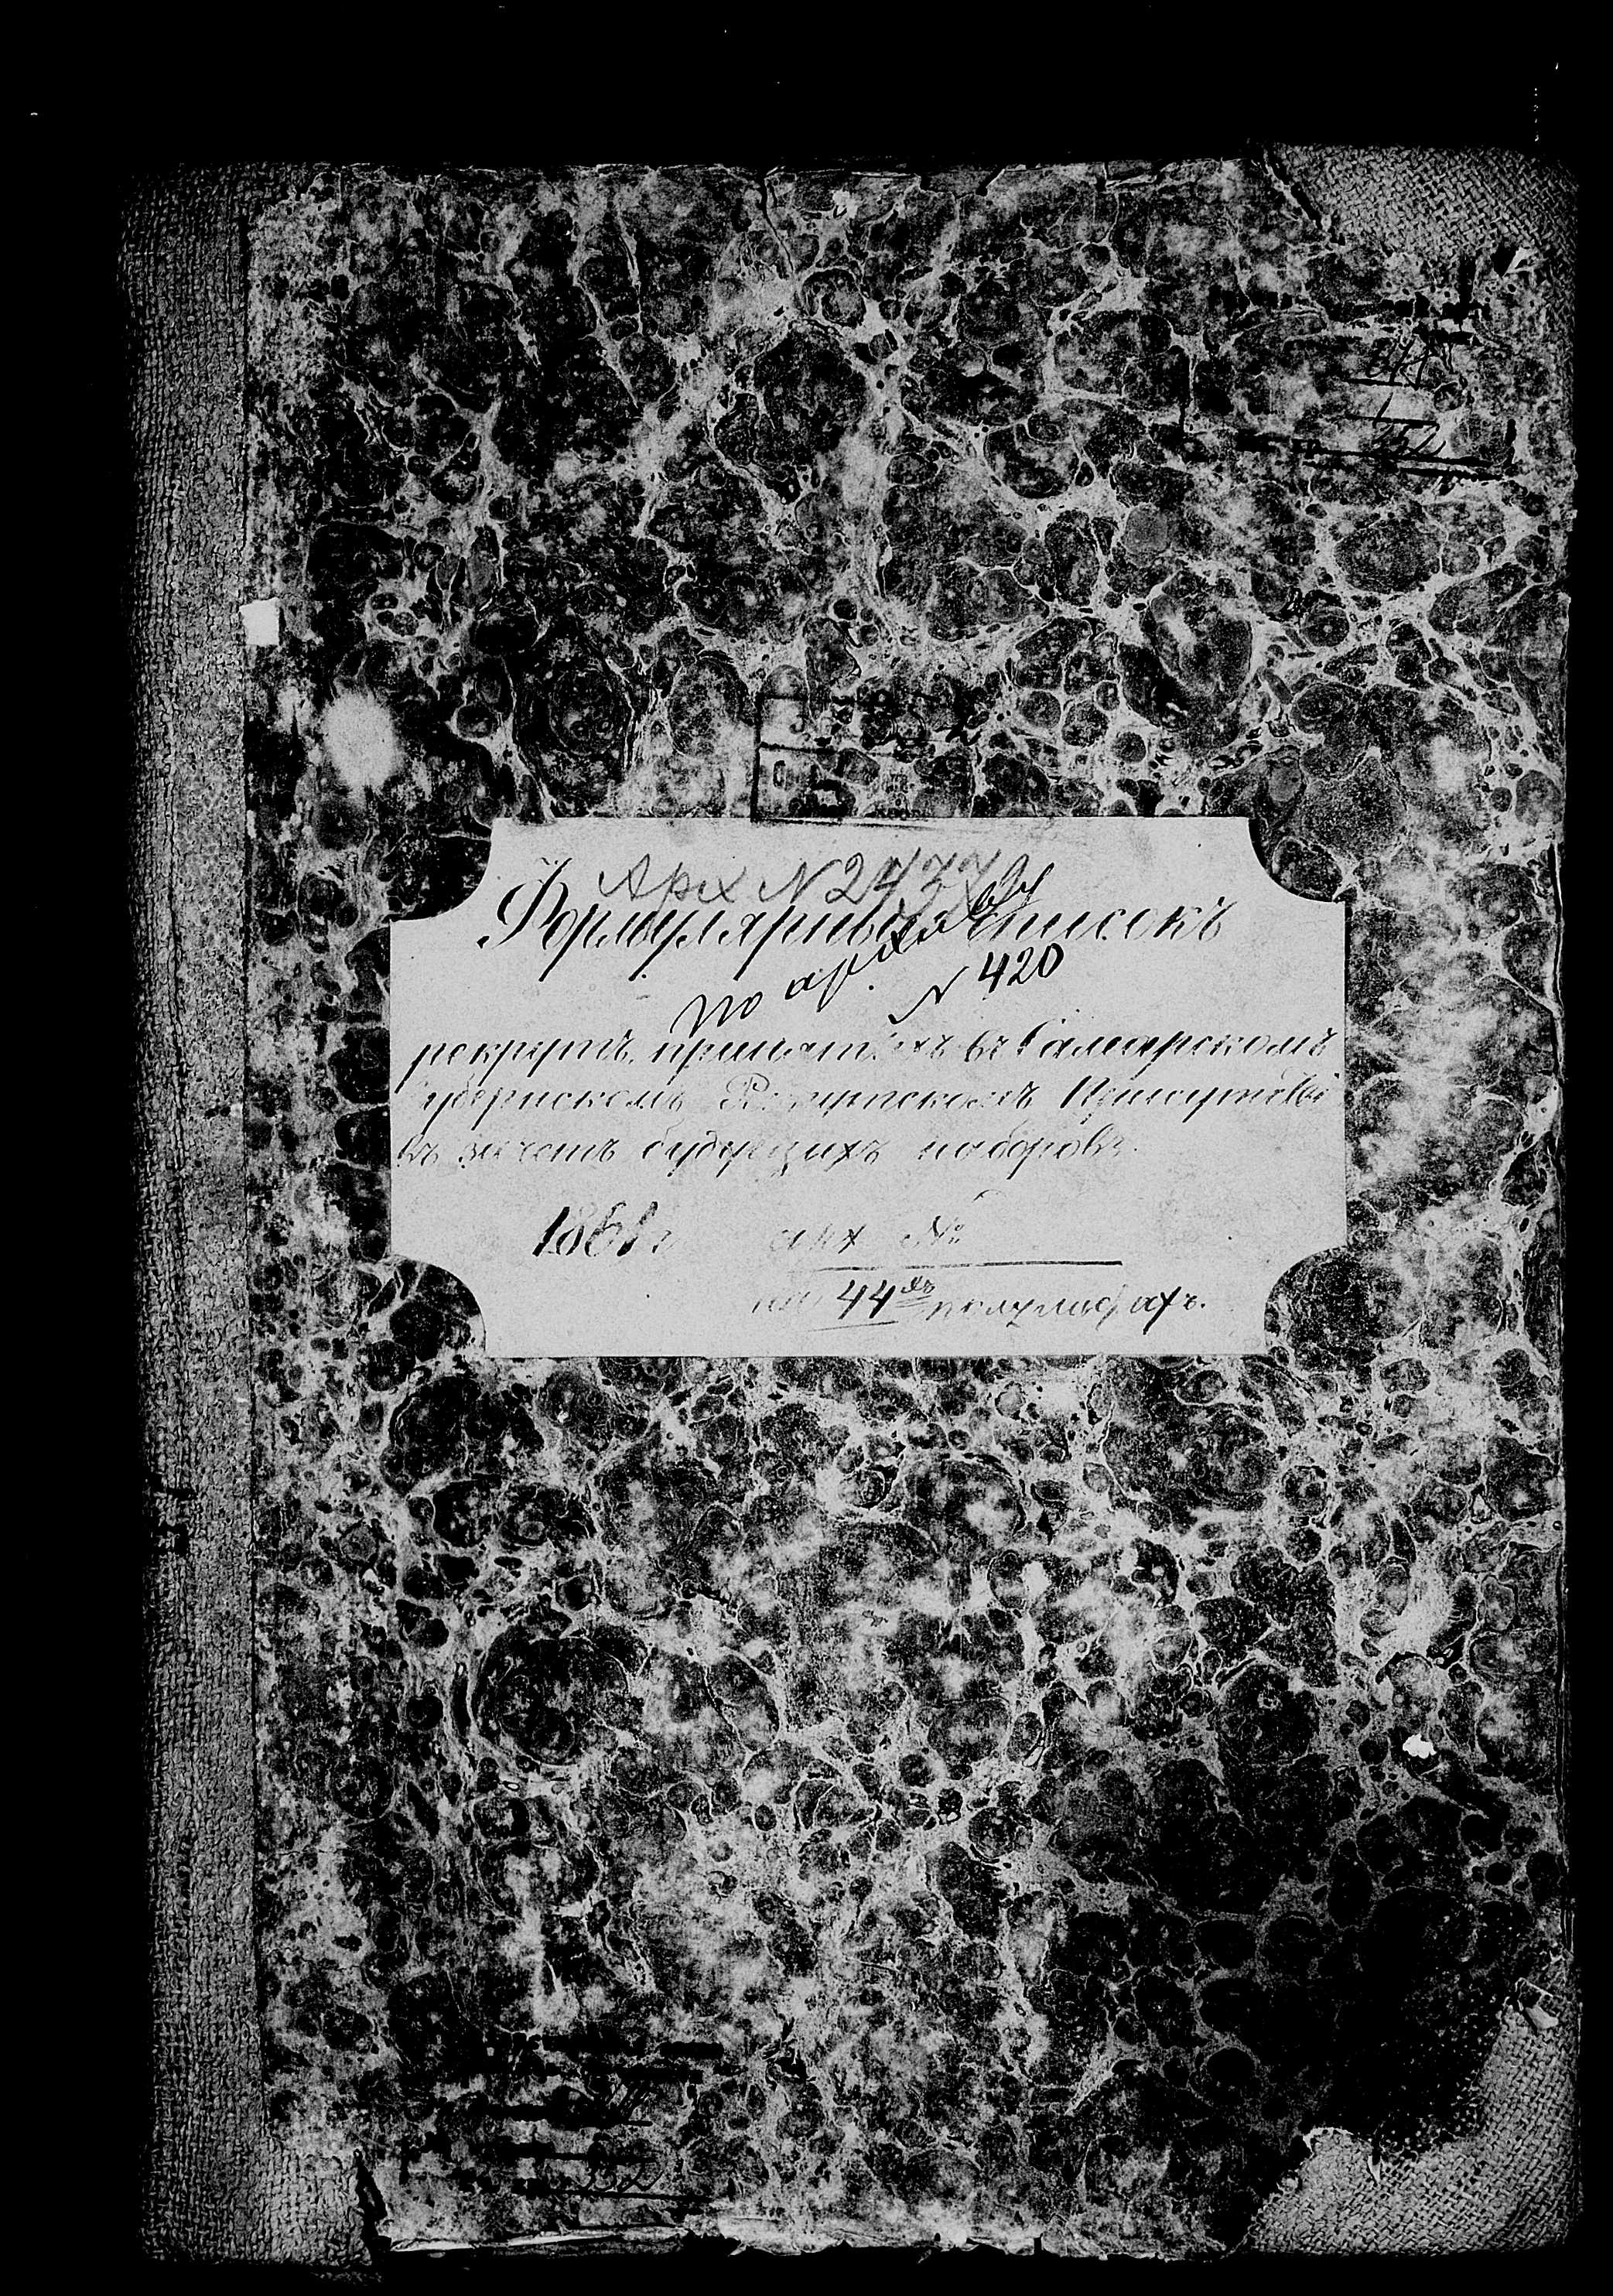 Арх N 2437
Формулярный списокъ
по архиву
N 420
рекрутъ, принятыхъ въ Самарскомъ
Губернскомъ Рекрутскомъ Присутствіи
въ зачетъ будущихъ наборовъ.
1861 г
арх №
на 44хъ полулистахъ.
352